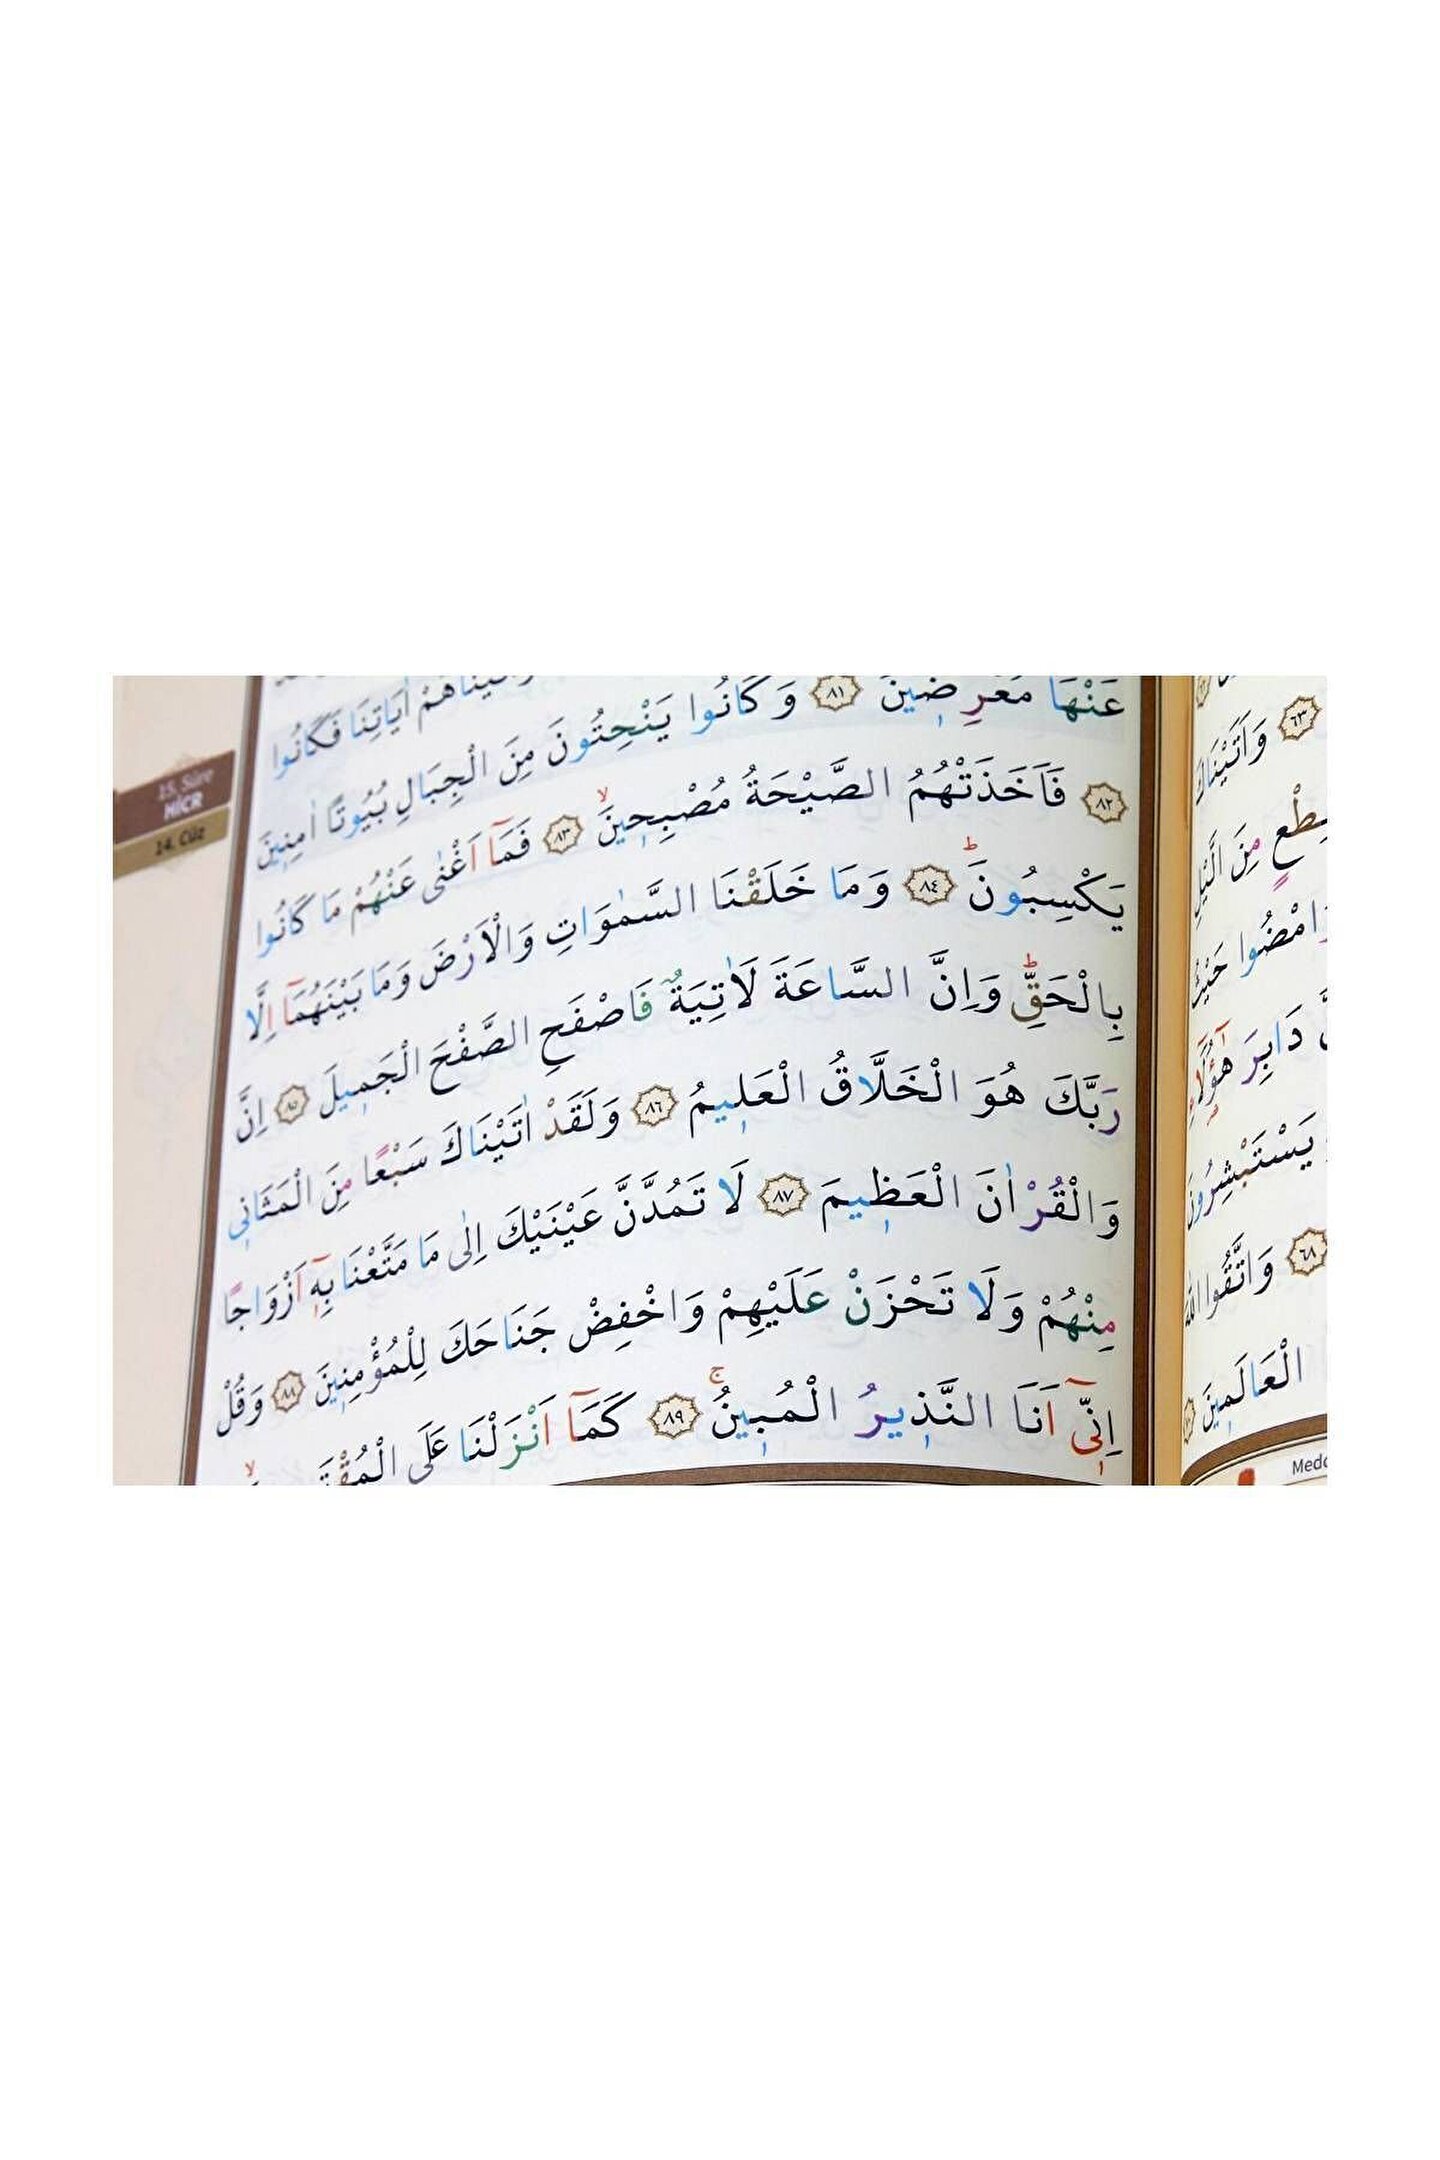 ٦٣ وَاَتَيْنَاكَ
بِقِطْعٍ مِنَ الَّيْلِ
وَامْضُوا حَيْثُ
دَابِرَ هٰٓؤُلَٓاءِ
يَسْتَبْشِرُونَ
٦٨ وَاتَّقُوا اللّٰهَ
الْعَالَمِينَ
15. Sûre
HİCR
14. Cüz
وَاٰتَيْنَاهُمْ اٰيَاتِنَا فَكَانُوا
عَنْهَا مُعْرِضِينَ ٨١ وَكَانُوا يَنْحِتُونَ مِنَ الْجِبَالِ بُيُوتًا اٰمِنِينَ
٨٢ فَاَخَذَتْهُمُ الصَّيْحَةُ مُصْبِحِينَۙ ٨٣ فَمَٓا اَغْنٰى عَنْهُمْ مَا كَانُوا
يَكْسِبُونَۜ ٨٤ وَمَا خَلَقْنَا السَّمٰوَاتِ وَالْاَرْضَ وَمَا بَيْنَهُمَٓا اِلَّا
بِالْحَقِّۜ وَاِنَّ السَّاعَةَ لَاٰتِيَةٌ فَاصْفَحِ الصَّفْحَ الْجَمِيلَ ٨٥ اِنَّ
رَبَّكَ هُوَ الْخَلَّاقُ الْعَلِيمُ ٨٦ وَلَقَدْ اٰتَيْنَاكَ سَبْعًا مِنَ الْمَثَانِي
وَالْقُرْاٰنَ الْعَظِيمَ ٨٧ لَا تَمُدَّنَّ عَيْنَيْكَ اِلٰى مَا مَتَّعْنَا بِهٖٓ اَزْوَاجًا
مِنْهُمْ وَلَا تَحْزَنْ عَلَيْهِمْ وَاخْفِضْ جَنَاحَكَ لِلْمُؤْمِنِينَ ٨٨ وَقُلْ
اِنِّٓي اَنَا النَّذِيرُ الْمُبِينُۚ ٨٩ كَمَٓا اَنْزَلْنَا عَلَى